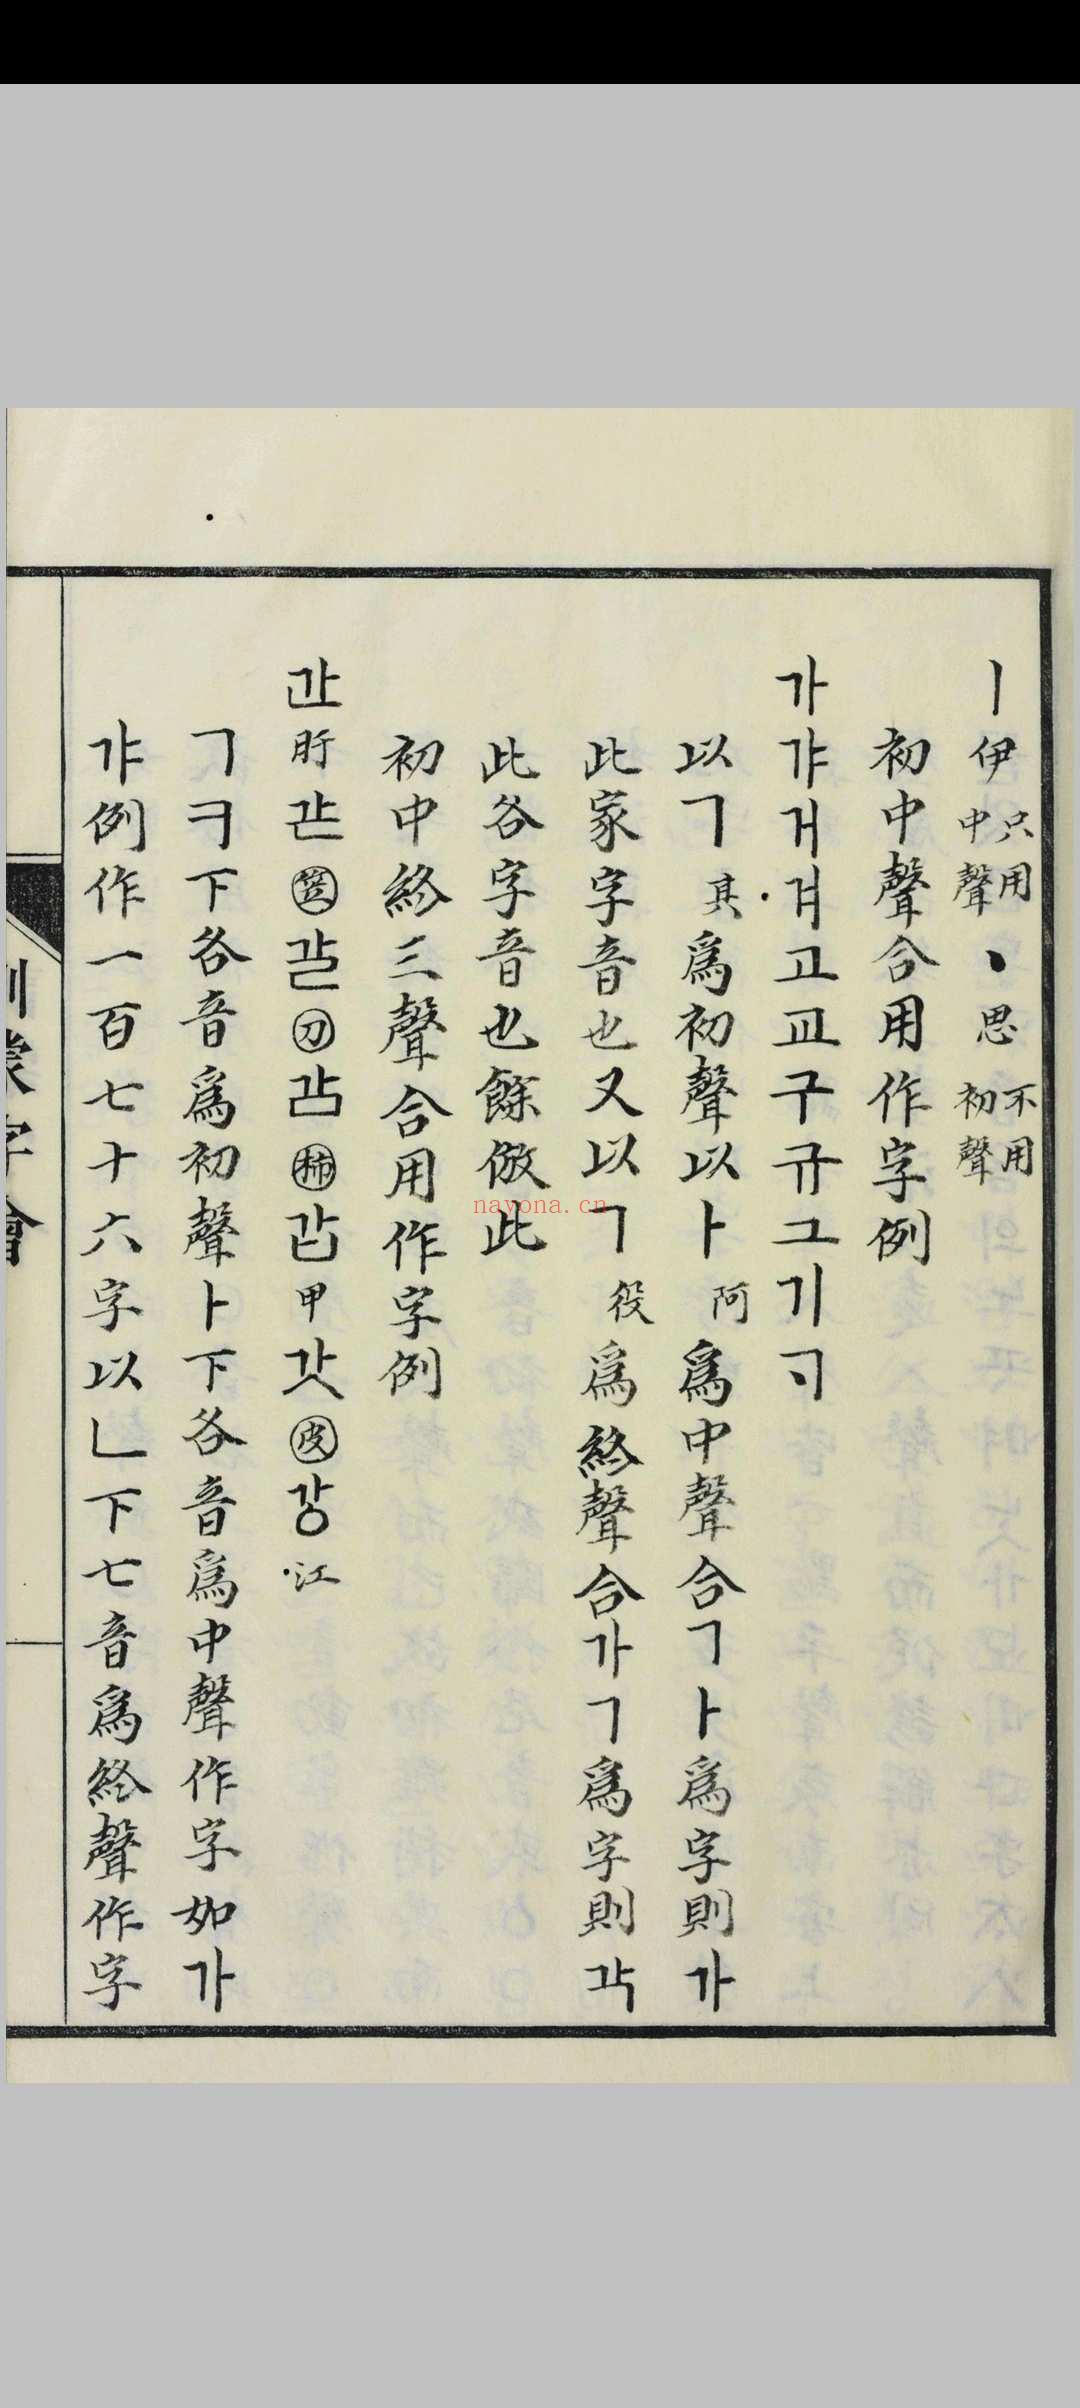 ㅣ伊只用中聲ㆍ思不用初聲
初中聲合用作字例
가갸거겨고교구규그기ᄀᆞ
以ㄱ其爲初聲以ㅏ阿爲中聲合ㄱㅏ爲字則가
此家字音也又以ㄱ役爲終聲合가ㄱ爲字則각
此各字音也餘倣此
初中終三聲合用作字例
간肝갇笠갈刀감枾갑甲갓皮강江
ㄱㅋ下各音爲初聲ㅏ下各音爲中聲作字如가
갸例作一百七十六字以ㄴ下七音爲終聲作字
訓蒙字會
nayona.cn